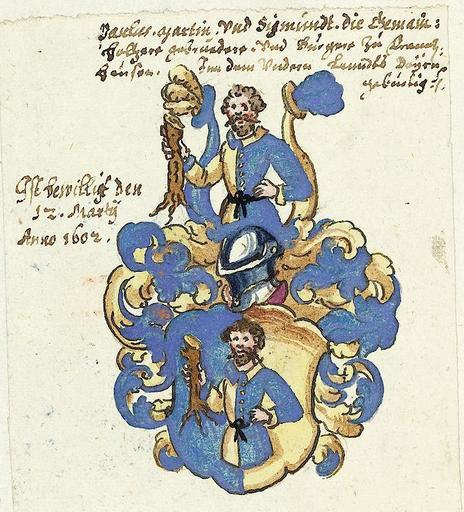 Paulus. Martin. Vnd Sigmundt. die Gemain:
holzere gebruedere. Vnd Burgere zu
hausen. Inn dem Vndern Lanndts Bayrn
gebürtig:/.
Ist bewilligt den
12. Marty
Anno 1602.